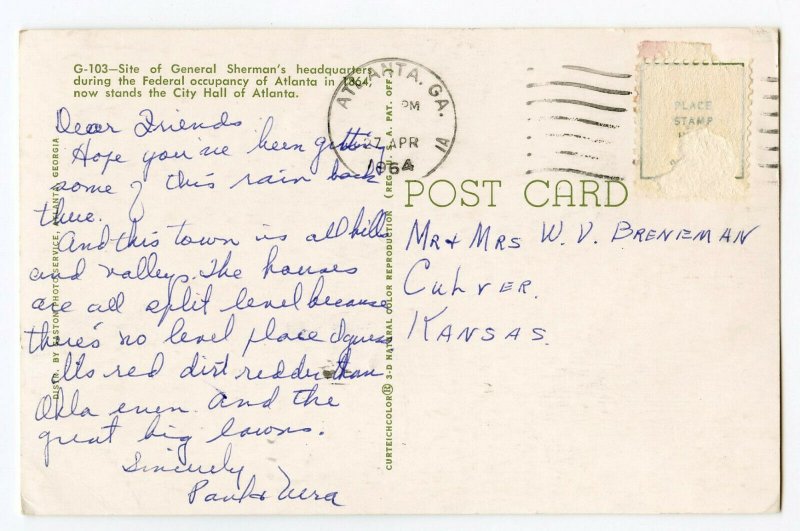 G-103—Site of General Sherman's headquarters
during the Federal occupancy of Atlanta in 1864,
now stands the City Hall of Atlanta.
Dear Friends
Hope you've been getting
some of this rain back
there.
And this town is all hills
and valleys. The houses
are all split level because
there's no level place I guess
Its red dirt redder than
Okla even. And the
great big lawns.
Sincerely
Paul & Vera
DISTR. BY EASTON PHOTO SERVICE, ATLANTA, GEORGIA
CURTEICHCOLOR® 3-D NATURAL COLOR REPRODUCTION (REG. U. S. A. PAT. OFF.)
ATLANTA, GA.
PM
27 APR
1964
1A
PLACE
STAMP
POST CARD
MR & MRS W. V. BRENEMAN
CULVER.
KANSAS.